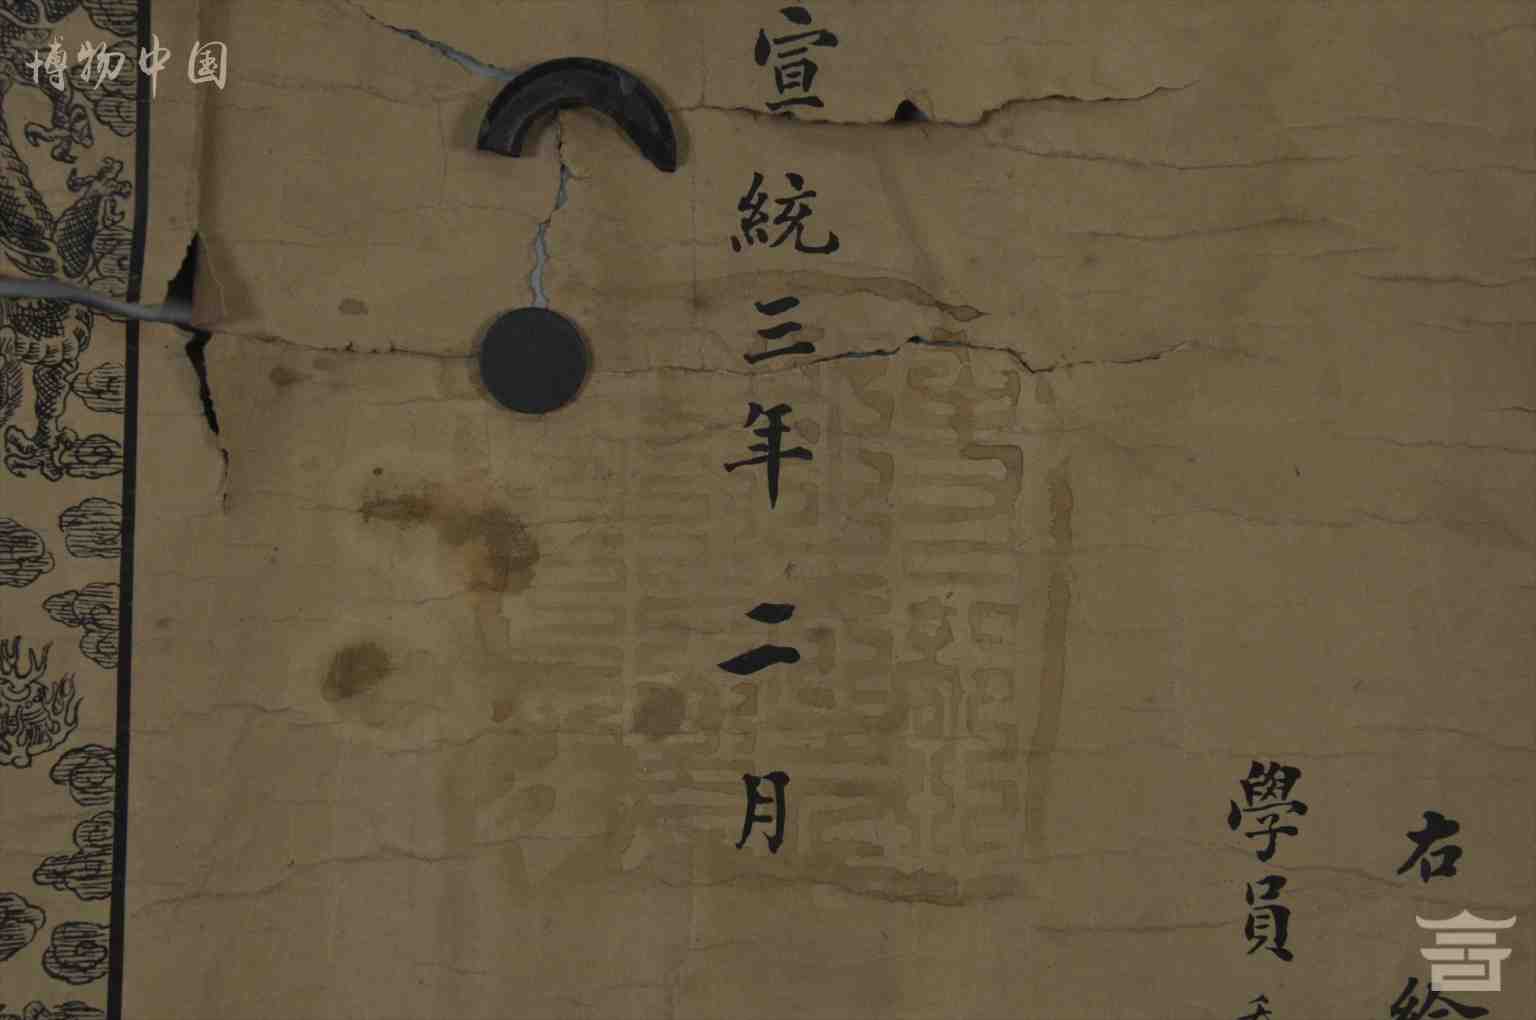 博物中国
右給
學員
宣統三年二月